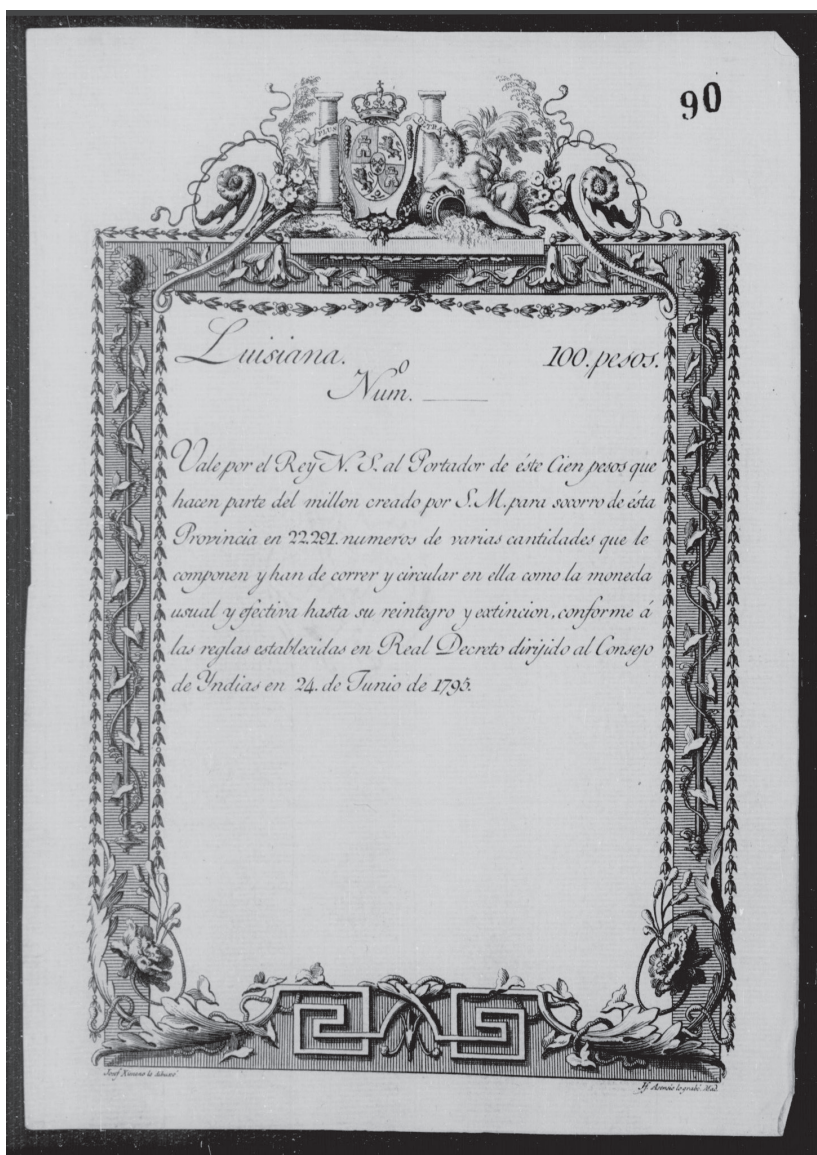 90
PLUS
VLTRA
MISISIPI
Luisiana. 100. pesos.
Num.º
Vale por el Rey N. S. al Portador de éste Cien pesos que
hacen parte del millon creado por S. M. para socorro de ésta
Provincia en 22.291. numeros de varias cantidades que le
componen y han de correr y circular en ella como la moneda
usual y efectiva hasta su reintegro y extincion, conforme á
las reglas establecidas en Real Decreto dirijido al Consejo
de Yndias en 24. de Junio de 1795.
Josef Ximeno lo dibuxó
Jf. Asensio lo grabó. Mad.